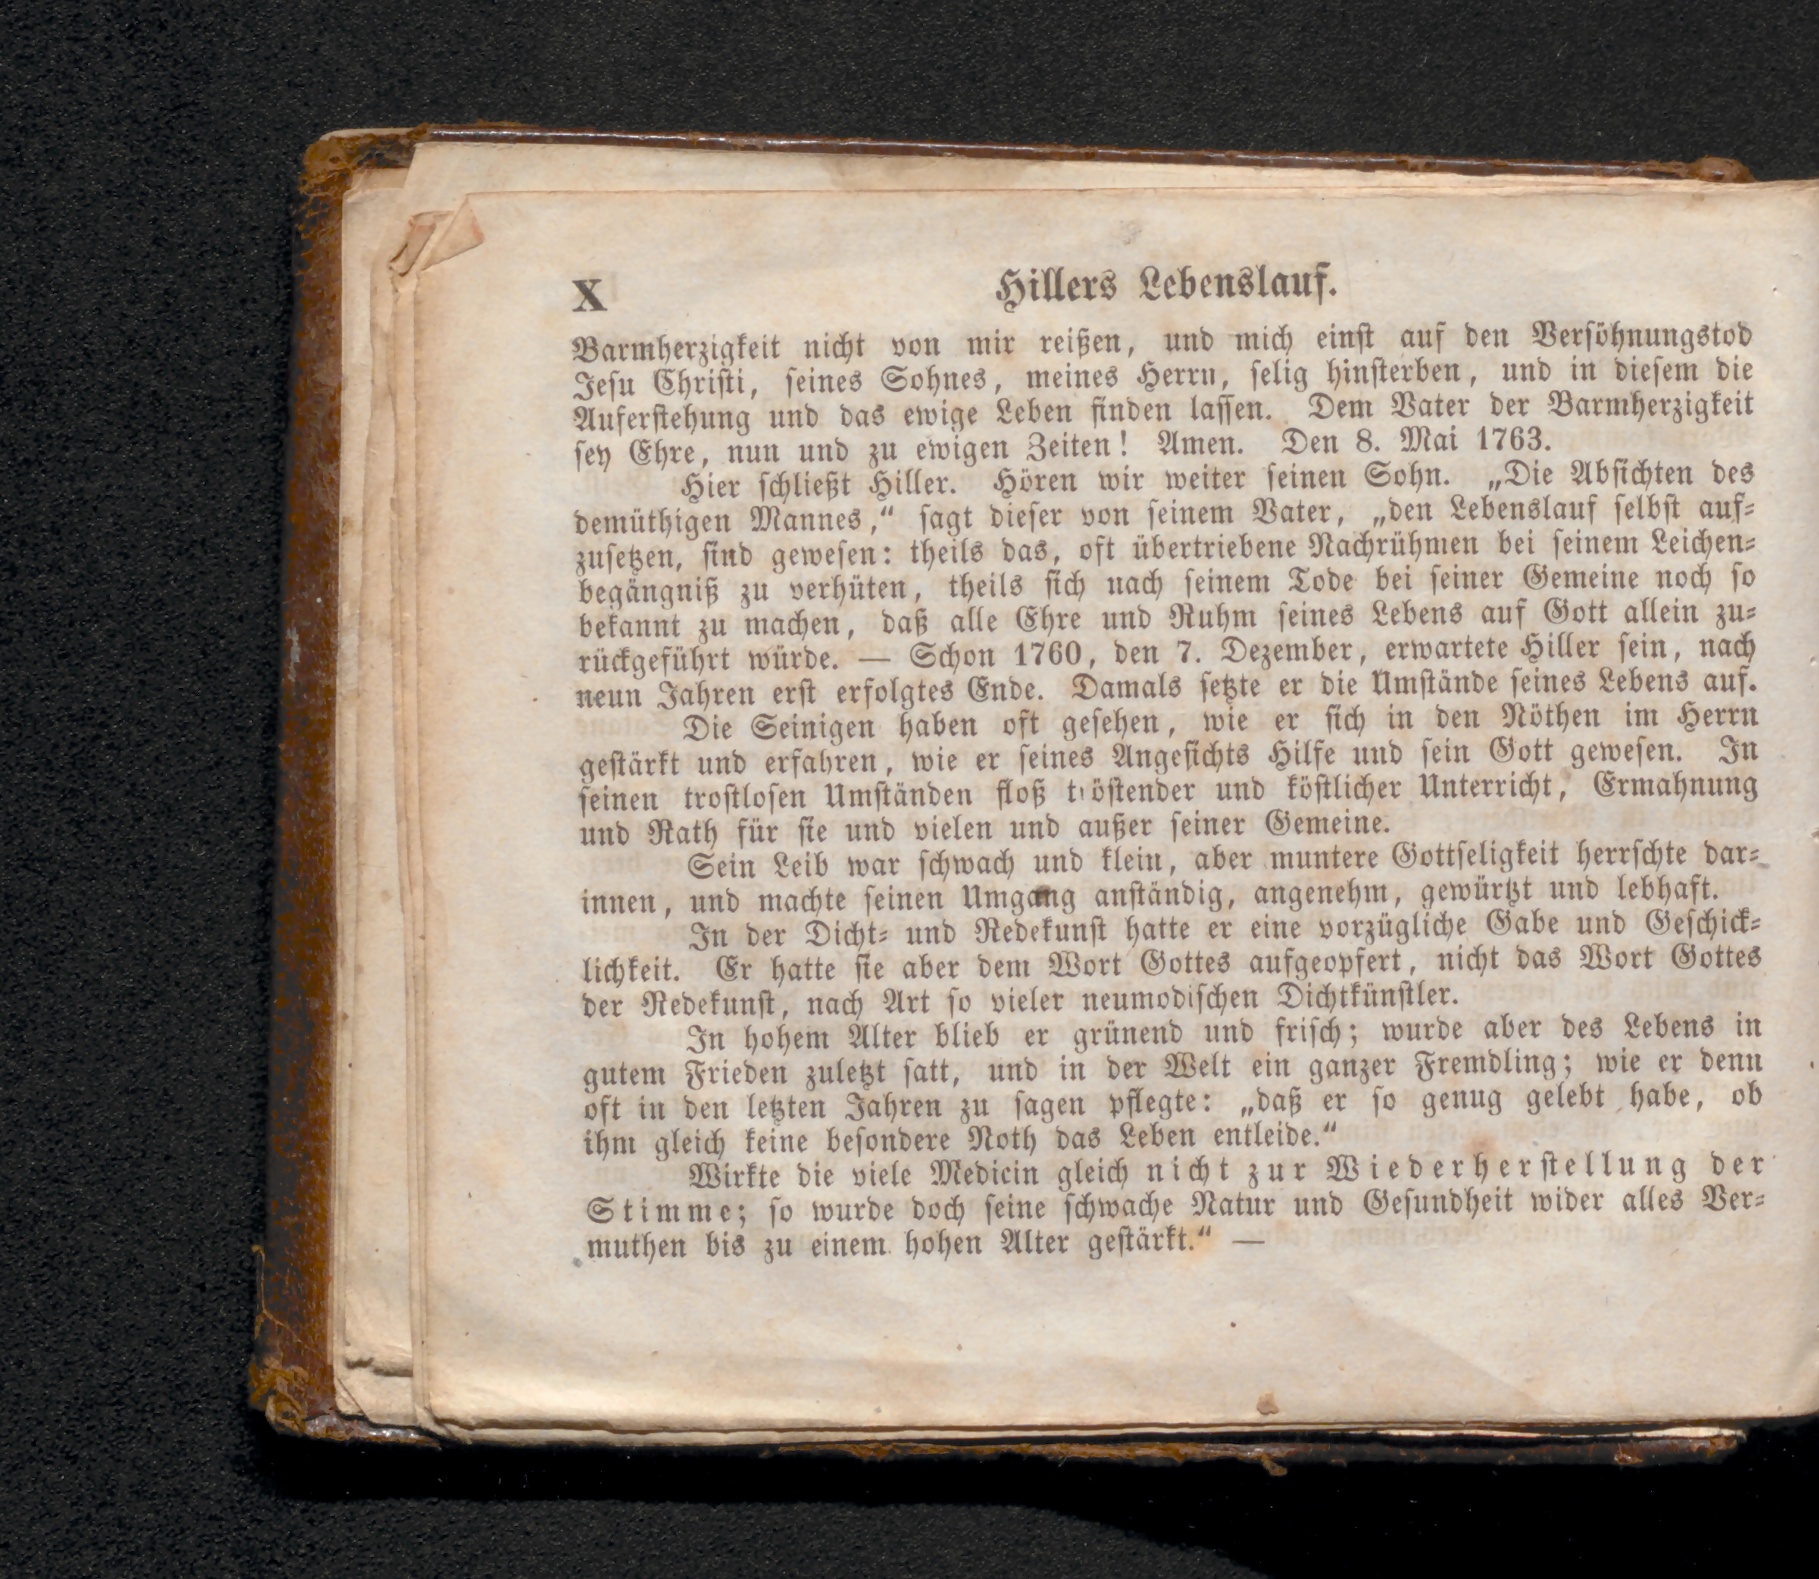 X
Hillers Lebenslauf.
Barmherzigkeit nicht von mir reißen, und mich einst auf den Versöhnungstod
Jesu Christi, seines Sohnes, meines Herrn, selig hinsterben, und in diesem die
Auferstehung und das ewige Leben finden lassen. Dem Vater der Barmherzigkeit
sey Ehre, nun und zu ewigen Zeiten! Amen. Den 8. Mai 1763.
Hier schließt Hiller. Hören wir weiter seinen Sohn. „Die Absichten des
demüthigen Mannes,“ sagt dieser von seinem Vater, „den Lebenslauf selbst auf-
zusetzen, sind gewesen: theils das, oft übertriebene Nachrühmen bei seinem Leichen-
begängniß zu verhüten, theils sich nach seinem Tode bei seiner Gemeine noch so
bekannt zu machen, daß alle Ehre und Ruhm seines Lebens auf Gott allein zu-
rückgeführt würde. — Schon 1760, den 7. Dezember, erwartete Hiller sein, nach
neun Jahren erst erfolgtes Ende. Damals setzte er die Umstände seines Lebens auf.
Die Seinigen haben oft gesehen, wie er sich in den Nöthen im Herrn
gestärkt und erfahren, wie er seines Angesichts Hilfe und sein Gott gewesen. In
seinen trostlosen Umständen floß tröstender und köstlicher Unterricht, Ermahnung
und Rath für sie und vielen und außer seiner Gemeine.
Sein Leib war schwach und klein, aber muntere Gottseligkeit herrschte dar-
innen, und machte seinen Umgang anständig, angenehm, gewürtzt und lebhaft.
In der Dicht- und Redekunst hatte er eine vorzügliche Gabe und Geschick-
lichkeit. Er hatte sie aber dem Wort Gottes aufgeopfert, nicht das Wort Gottes
der Redekunst, nach Art so vieler neumodischen Dichtkünstler.
In hohem Alter blieb er grünend und frisch; wurde aber des Lebens in
gutem Frieden zuletzt satt, und in der Welt ein ganzer Fremdling; wie er denn
oft in den letzten Jahren zu sagen pflegte: „daß er so genug gelebt habe, ob
ihm gleich keine besondere Noth das Leben entleide.“
Wirkte die viele Medicin gleich nicht zur Wiederherstellung der
Stimme; so wurde doch seine schwache Natur und Gesundheit wider alles Ver-
muthen bis zu einem hohen Alter gestärkt.“ —